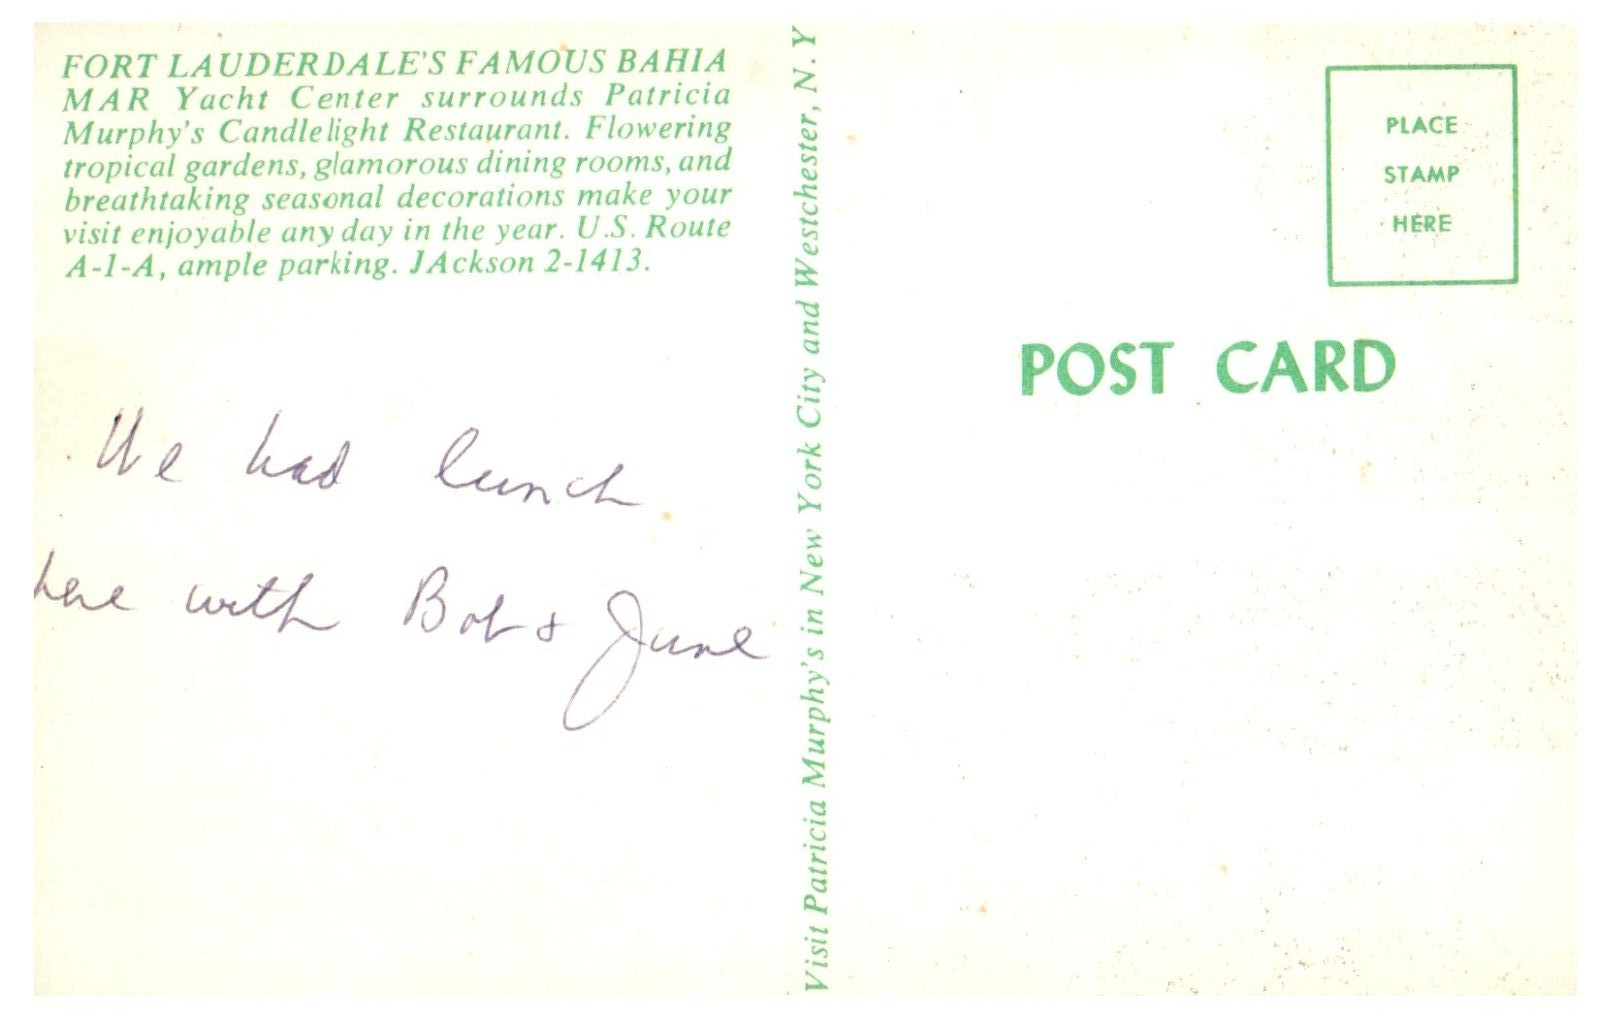 FORT LAUDERDALE'S FAMOUS BAHIA
MAR Yacht Center surrounds Patricia
Murphy's Candlelight Restaurant. Flowering
tropical gardens, glamorous dining rooms, and
breathtaking seasonal decorations make your
visit enjoyable any day in the year. U.S. Route
A-1-A, ample parking. JAckson 2-1413.
We had lunch
here with Bob & June
Visit Patricia Murphy's in New York City and Westchester, N. Y
PLACE
STAMP
HERE
POST CARD